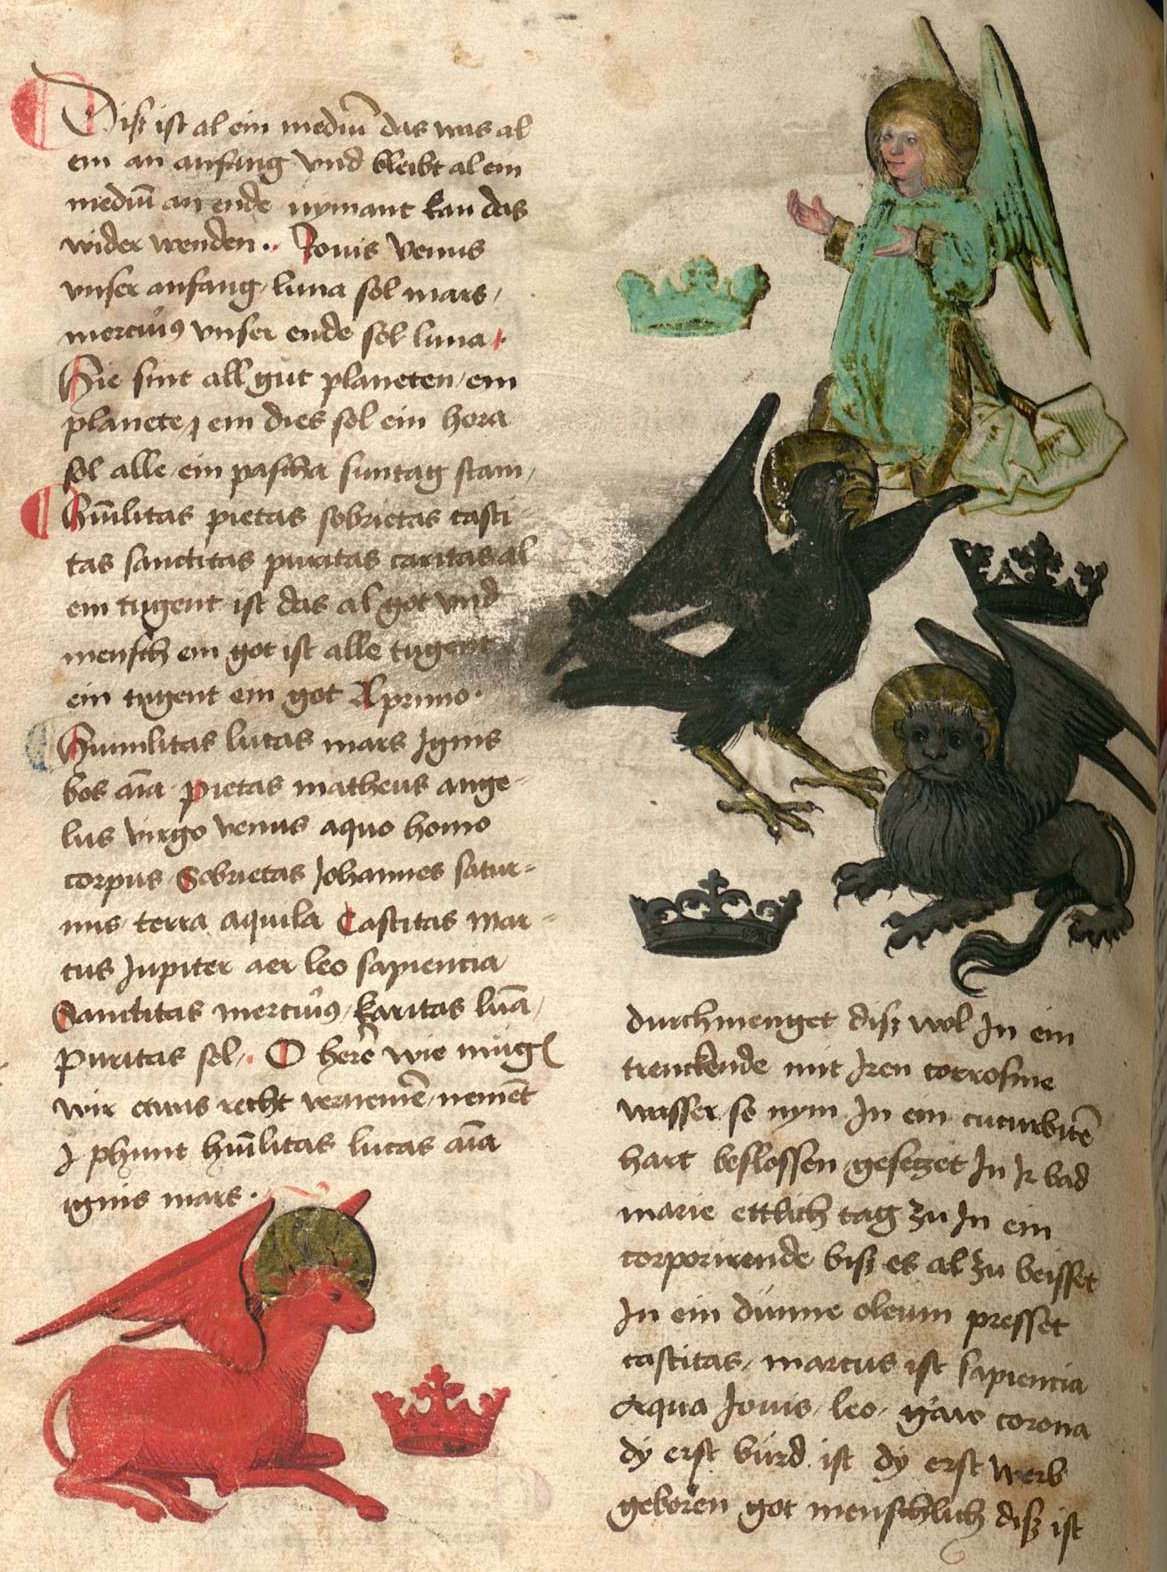 Diß ist al ein mediū das was al
ein an anfang vnd bleibt al ein
mediū an ende nymant kan das
wider wenden .. Jouis venus
vnser anfang luna sol mars
mercuriꝰ vnser ende sol luna
Hie sint all gut planeten ein
planete j ein dies sol ein hora
sol alle ein pascha suntag stam
Hūilitas pietas sobrietas casti
tas sanctitas puritas caritas al
ein tugent ist das al got vnd
mensch ein got ist alle tugent
ein tugent ein got A primo ·
Humilitas lucas mars Ignis
bos aīa pietas matheus ange-
lus virgo venus aquo homo
corpus Sobrietas Johannes satur-
nus terra aquila Castitas Mar-
cus Jupiter aer leo sapiencia
Sanctitas mercuriꝰ karitas lūa
puritas sol. O herē wie mug
wir etwas recht vernemē nemēt
J phunt hūilitas lucas aīa
ignis mars ·
durchmenget diß wol Jn ein
trenckende mit Jren corrosiue
wasser so nym Jn ein cucurbitē
hart beslossen gesetzet Jn Jr bad
marie ettlich tag zu Jn ein
corporirende biß es al zu beisset
Jn ein dunne oleum presset
castitas marcus ist sapiencia
Aqua Jouis leo corona
dy erst burd ist dy erst werb
geboren got menschlich diß ist